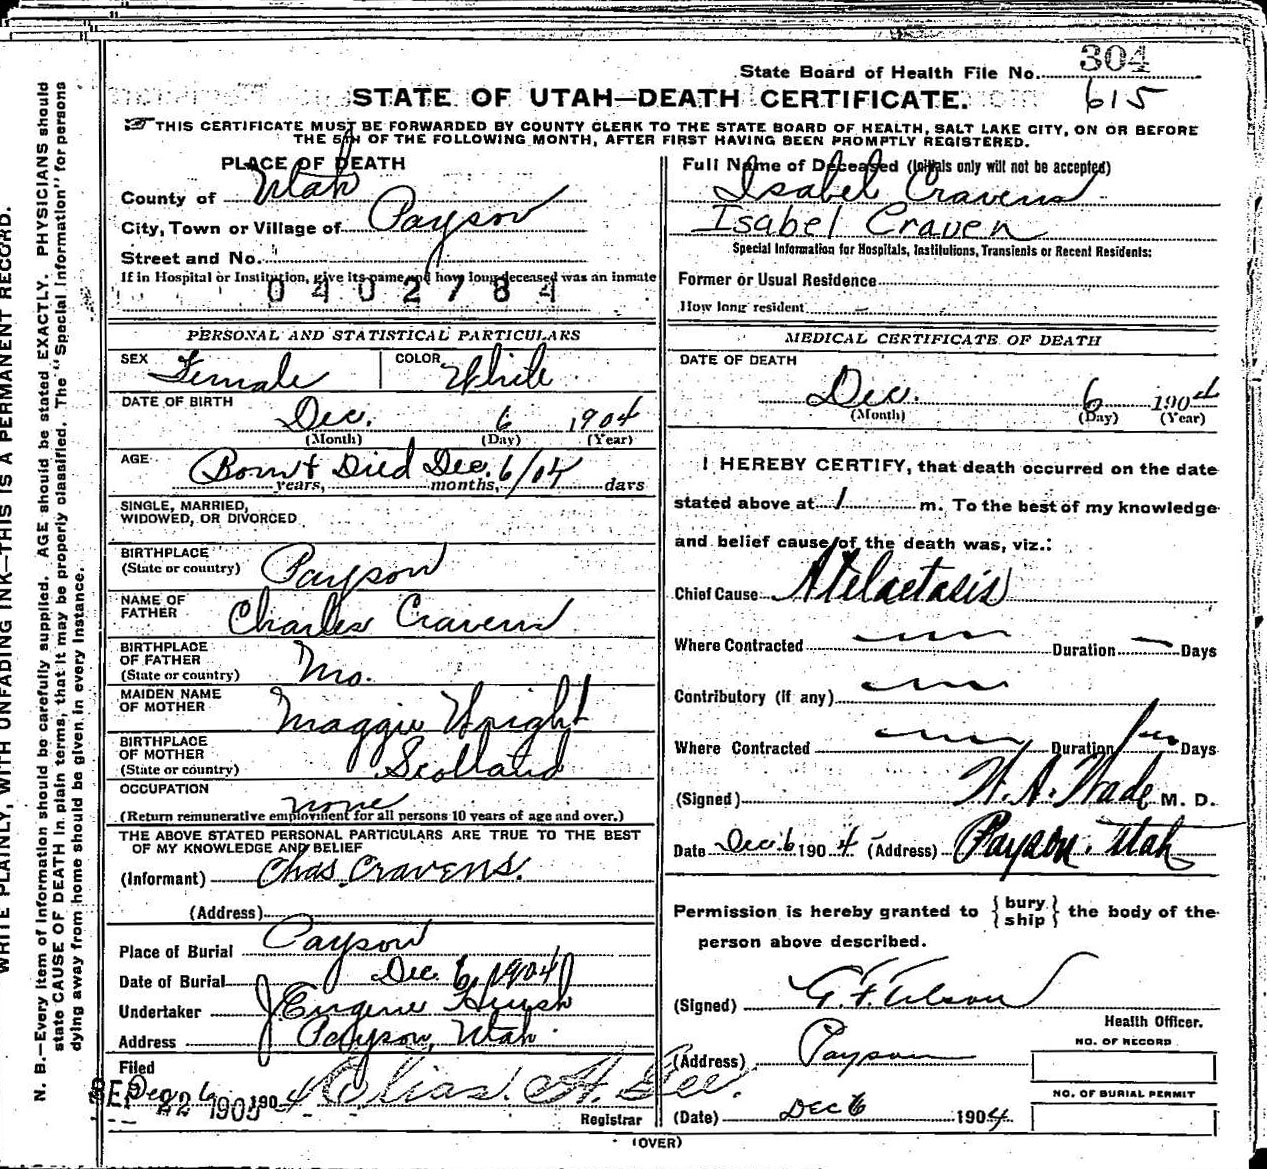 304
State Board of Health File No.
615
STATE OF UTAH—DEATH CERTIFICATE.
THIS CERTIFICATE MUST BE FORWARDED BY COUNTY CLERK TO THE STATE BOARD OF HEALTH, SALT LAKE CITY, ON OR BEFORE
THE 5TH OF THE FOLLOWING MONTH, AFTER FIRST HAVING BEEN PROMPTLY REGISTERED.
WRITE PLAINLY, WITH UNFADING INK—THIS IS A PERMANENT RECORD.
N. B.—Every item of information should be carefully supplied. AGE should be stated EXACTLY. PHYSICIANS should
state CAUSE OF DEATH in plain terms, that it may be properly classified. The "Special Information" for persons
dying away from home should be given in every instance.
PLACE OF DEATH
County of Utah
City, Town or Village of Payson
Street and No.
If in Hospital or Institution, give its name and how long deceased was an inmate
0402784
PERSONAL AND STATISTICAL PARTICULARS
SEX Female COLOR White
DATE OF BIRTH
Dec. 6 1904
(Month) (Day) (Year)
AGE Born + Died Dec. 6/04
years, months, days
SINGLE, MARRIED,
WIDOWED, OR DIVORCED
BIRTHPLACE
(State or country) Payson
NAME OF
FATHER Charles Cravens
BIRTHPLACE
OF FATHER
(State or country) Mo.
MAIDEN NAME
OF MOTHER Maggie Wright
BIRTHPLACE
OF MOTHER
(State or country) Scotland
OCCUPATION
none
(Return remunerative employment for all persons 10 years of age and over.)
THE ABOVE STATED PERSONAL PARTICULARS ARE TRUE TO THE BEST
OF MY KNOWLEDGE AND BELIEF
(Informant) Chas. Cravens.
(Address)
Place of Burial Payson
Date of Burial Dec. 6, 1904
Undertaker J. Eugene
Address Payson, Utah
Filed
Dec 6 1904 Elias. A. Gee.
22 1905
Registrar
Full Name of Deceased (Initials only will not be accepted)
Isabel Cravens
Isabel Craven
Special Information for Hospitals, Institutions, Transients or Recent Residents:
Former or Usual Residence
How long resident
MEDICAL CERTIFICATE OF DEATH
DATE OF DEATH
Dec. 6 1904
(Month) (Day) (Year)
I HEREBY CERTIFY, that death occurred on the date
stated above at 1 m. To the best of my knowledge
and belief cause of the death was, viz.:
Chief Cause Atelactasis
Where Contracted Duration Days
Contributory (if any)
Where Contracted Duration Days
(Signed) Wade M. D.
Date Dec. 6 1904 (Address) Payson. Utah
Permission is hereby granted to { bury ship } the body of the
person above described.
(Signed) G. F. Tilson
Health Officer.
(Address) Payson
NO. OF RECORD
NO. OF BURIAL PERMIT
(Date) Dec 6 1904
(OVER)